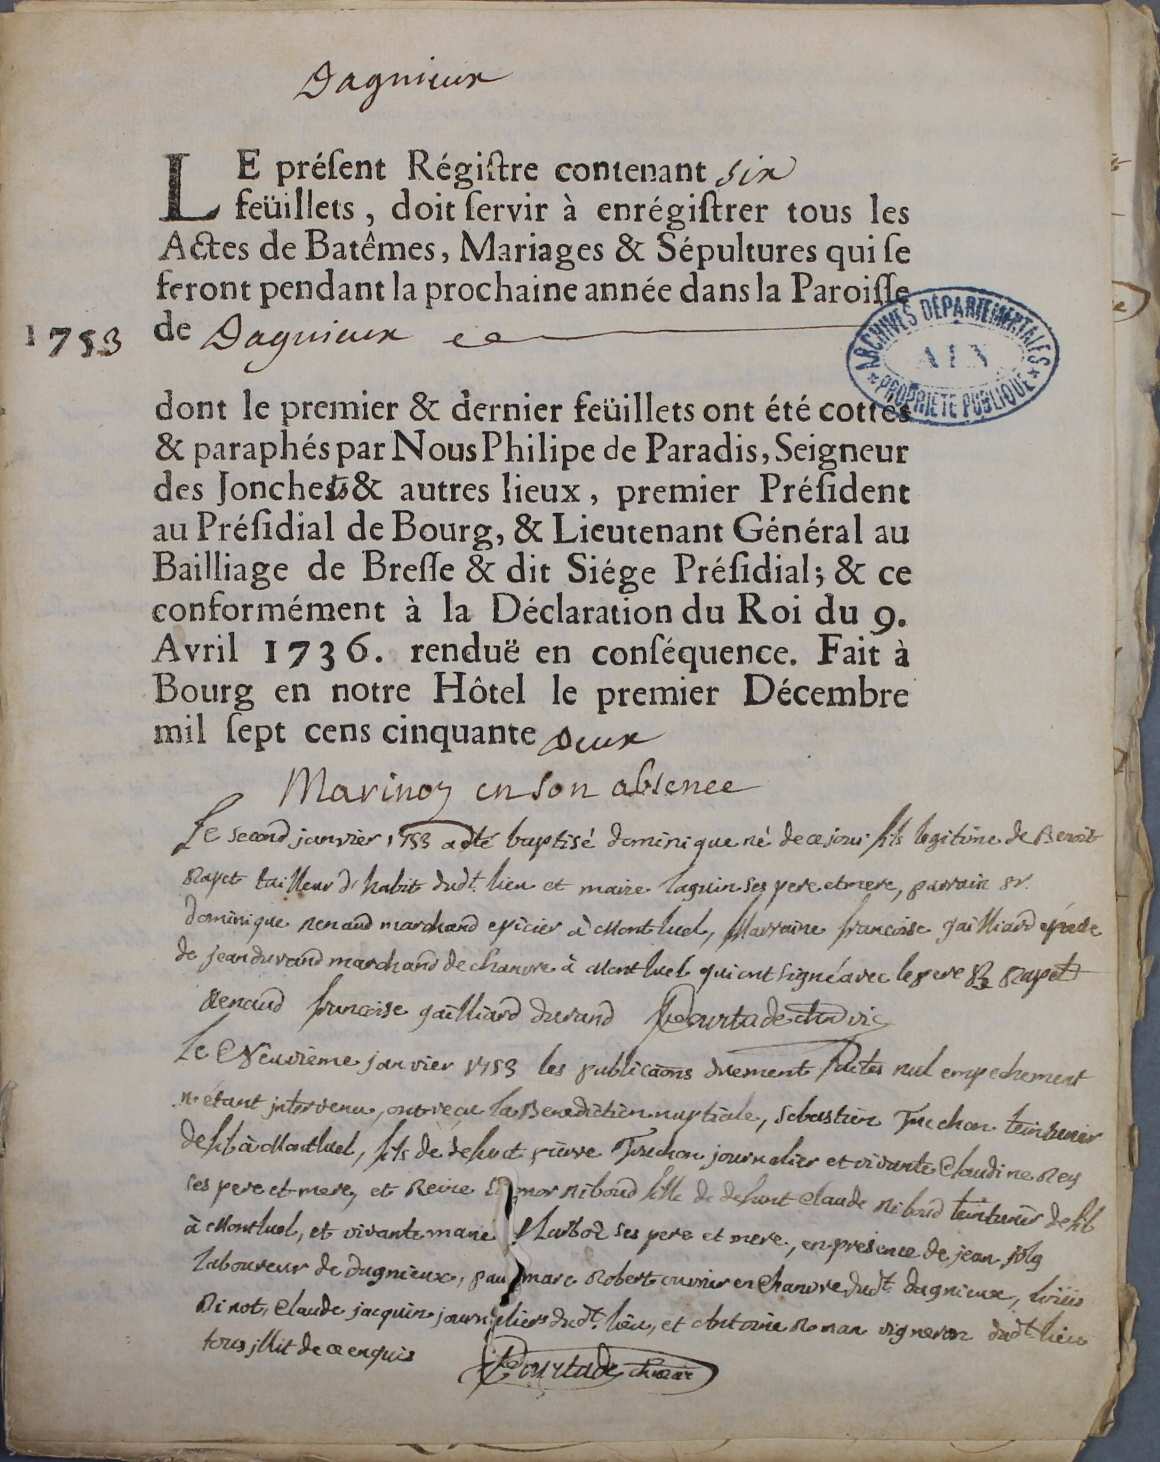 Dagnieux
LE préſent Régiſtre contenant six
feüillets, doit ſervir à enrégiſtrer tous les
Actes de Batêmes, Mariages & Sépultures qui ſe
feront pendant la prochaine année dans la Paroiſſe
1753 de Dagnieux
ARCHIVES DÉPARTEMENTALES
AIN
PROPRIÉTÉ PUBLIQUE
dont le premier & dernier feüillets ont été cottés
& paraphés par Nous Philipe de Paradis, Seigneur
des Jonchets & autres lieux, premier Préſident
au Préſidial de Bourg, & Lieutenant Général au
Bailliage de Breſſe & dit Siége Préſidial; & ce
conformément à la Déclaration du Roi du 9.
Avril 1736. renduë en conſéquence. Fait à
Bourg en notre Hôtel le premier Décembre
mil ſept cens cinquante deux
Marinon en son absence
Le second janvier 1753 a eté baptisé dominique né de ce jour fils legitime de Benoit
Rapet tailleur d'habit dudt. lieu et marie laguin ses pere et mere, parrain sr.
dominique Renaud marchand epicier à Montluel, Marraine francoise gailliard epouse
de jean durand marchand de chanvre à Montluel qui ont signé avec le pere B Rapet
Renaud francoise gailliard durand Courtade
Le Neuvieme janvier 1753 les publicaons duement faites nul empechement
n'etant intervenu, ont recu la Benediction nuptiale, sebastien Truchon teinturier
de fil à Montluel, fils de defunt pierre Truchon journalier et vivante Claudine Rey
ses pere et mere, et Reine Riboud fille de defunt Claude Riboud teinturier de fil
à Montluel, et vivante marie ses pere et mere, en presence de jean joly
laboureur de dagnieux, marc Robert ouvrier en Chanvre dudt. dagnieux, loüis
Binot, Claude jacquin journaliers dudt. lieu, et Antoine Roman vigneron dudt. lieu
tous illit. de ce enquis Courtade